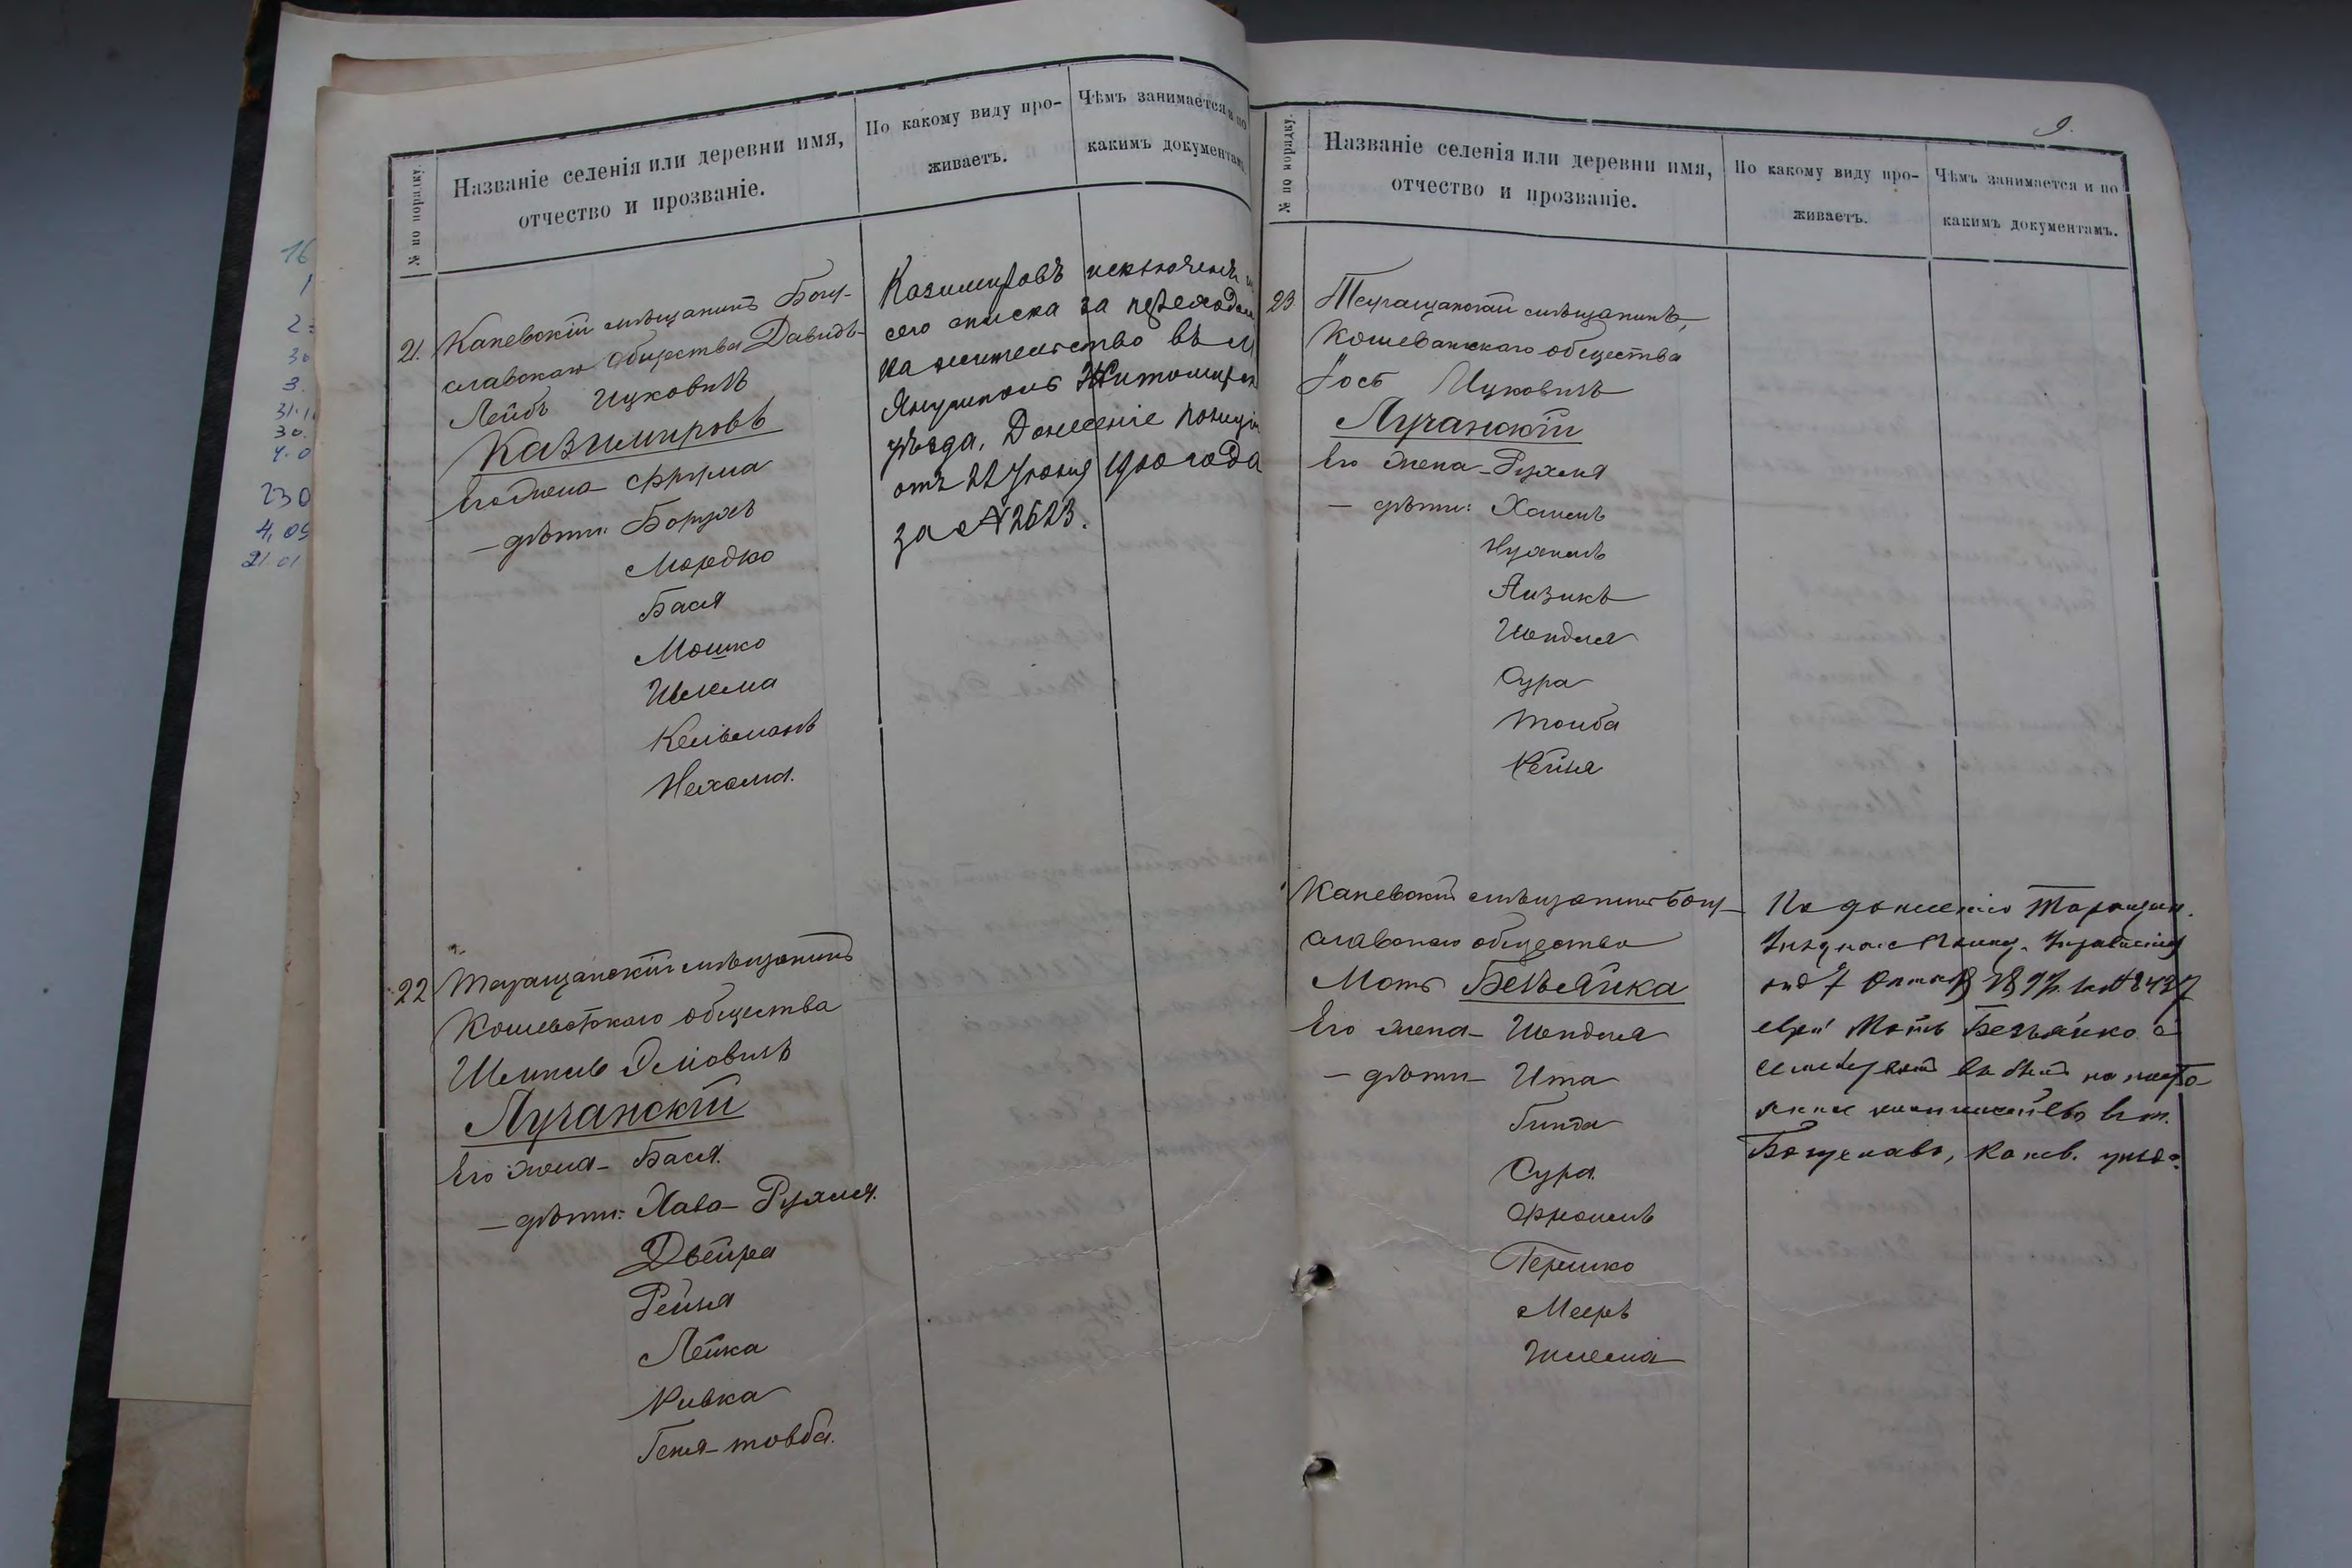 № по порядку.
Названіе селенія или деревни имя,
отчество и прозваніе.
По какому виду про-
живаетъ.
Чѣмъ занимается и по
какимъ документамъ.
21. Каневскій мѣщанинъ Богу-
славскаго Общества Давидъ-
Лейбъ Ицковичъ
Казимировъ
Его жена Фрума
— дѣти: Борухъ
Мордко
Бася
Мошко
Шлема
Кельманъ
Нехама.
Казимировъ исключенъ
сего списка за переходомъ
на жительство въ м
Янушполь Житомирск
уѣзда. Донесеніе полиціи
отъ 22 Іюня 1900 года
за № 2623.
22 Таращанскій мѣщанинъ
Кошеватскаго общества
Шмиль
Лучанскій
Его жена - Бася.
— дѣти: Хава - Рухля.
Двейра
Рейзя
Лейка
Ривка
Геня - товба.
16
1
30
3.
31.1
30.
4.0
230
4,09
21.01
9.
№ по порядку.
Названіе селенія или деревни имя,
отчество и прозваніе.
По какому виду про-
живаетъ.
Чѣмъ занимается и по
какимъ документамъ.
23 Таращанскій мѣщанинъ,
Кошеватскаго общества
Іось Ицковичъ
Лучанскій
Его жена - Рухля
— дѣти: Хаимъ
Нухимъ
Айзикъ
Шендля
Сура
Тойба
Рейзя
Каневскій мѣщанинъ Богу-
славскаго общества
Моть Безъяйка
Его жена - Шендля
— дѣти - Ита
Гинда
Сура.
Фроимъ
Гершко
Мееръ
Шлема
По донесенію Таращан.
Уѣзднаго Полиц. Управленія
отъ 7 Октября 1897 за № 8437
еврей Моть Безъяйко съ
семействомъ на посто-
янное жительство въ м.
Богуславъ, Канев. уѣзда.